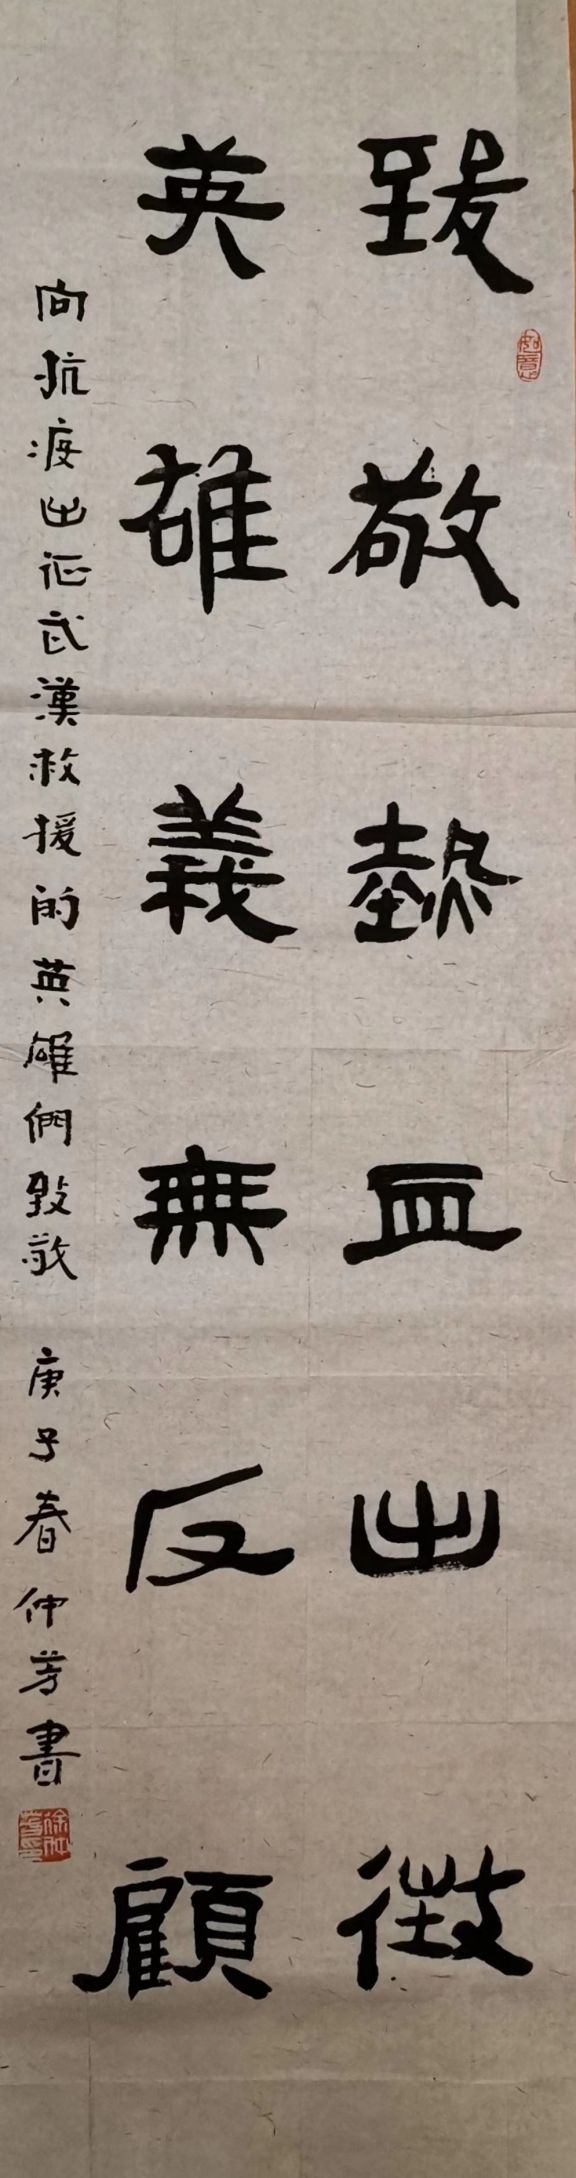 致敬熱血出徵
英雄義無反顧
向抗疫出征武漢救援的英雄們致敬 庚子春仲芳書
如意